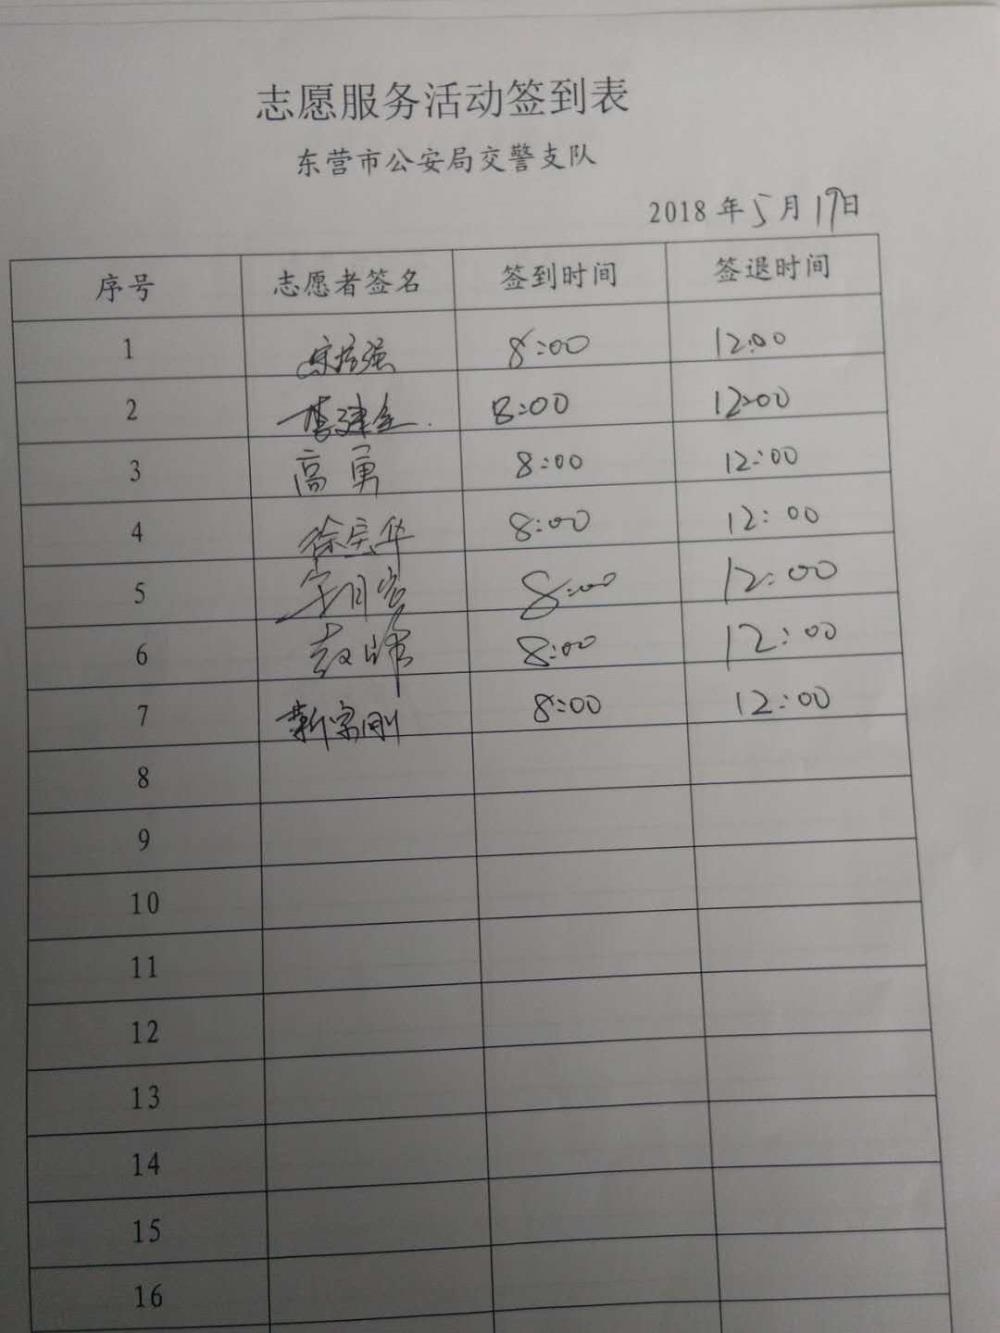 志愿服务活动签到表
东营市公安局交警支队
2018 年 5 月 19日
序号 志愿者签名 签到时间 签退时间
1 8:00 12:00
2 李建全 8:00 12:00
3 高勇 8:00 12:00
4 徐宝华 8:00 12:00
5 8:00 12:00
6 8:00 12:00
7 靳宗刚 8:00 12:00
8
9
10
11
12
13
14
15
16